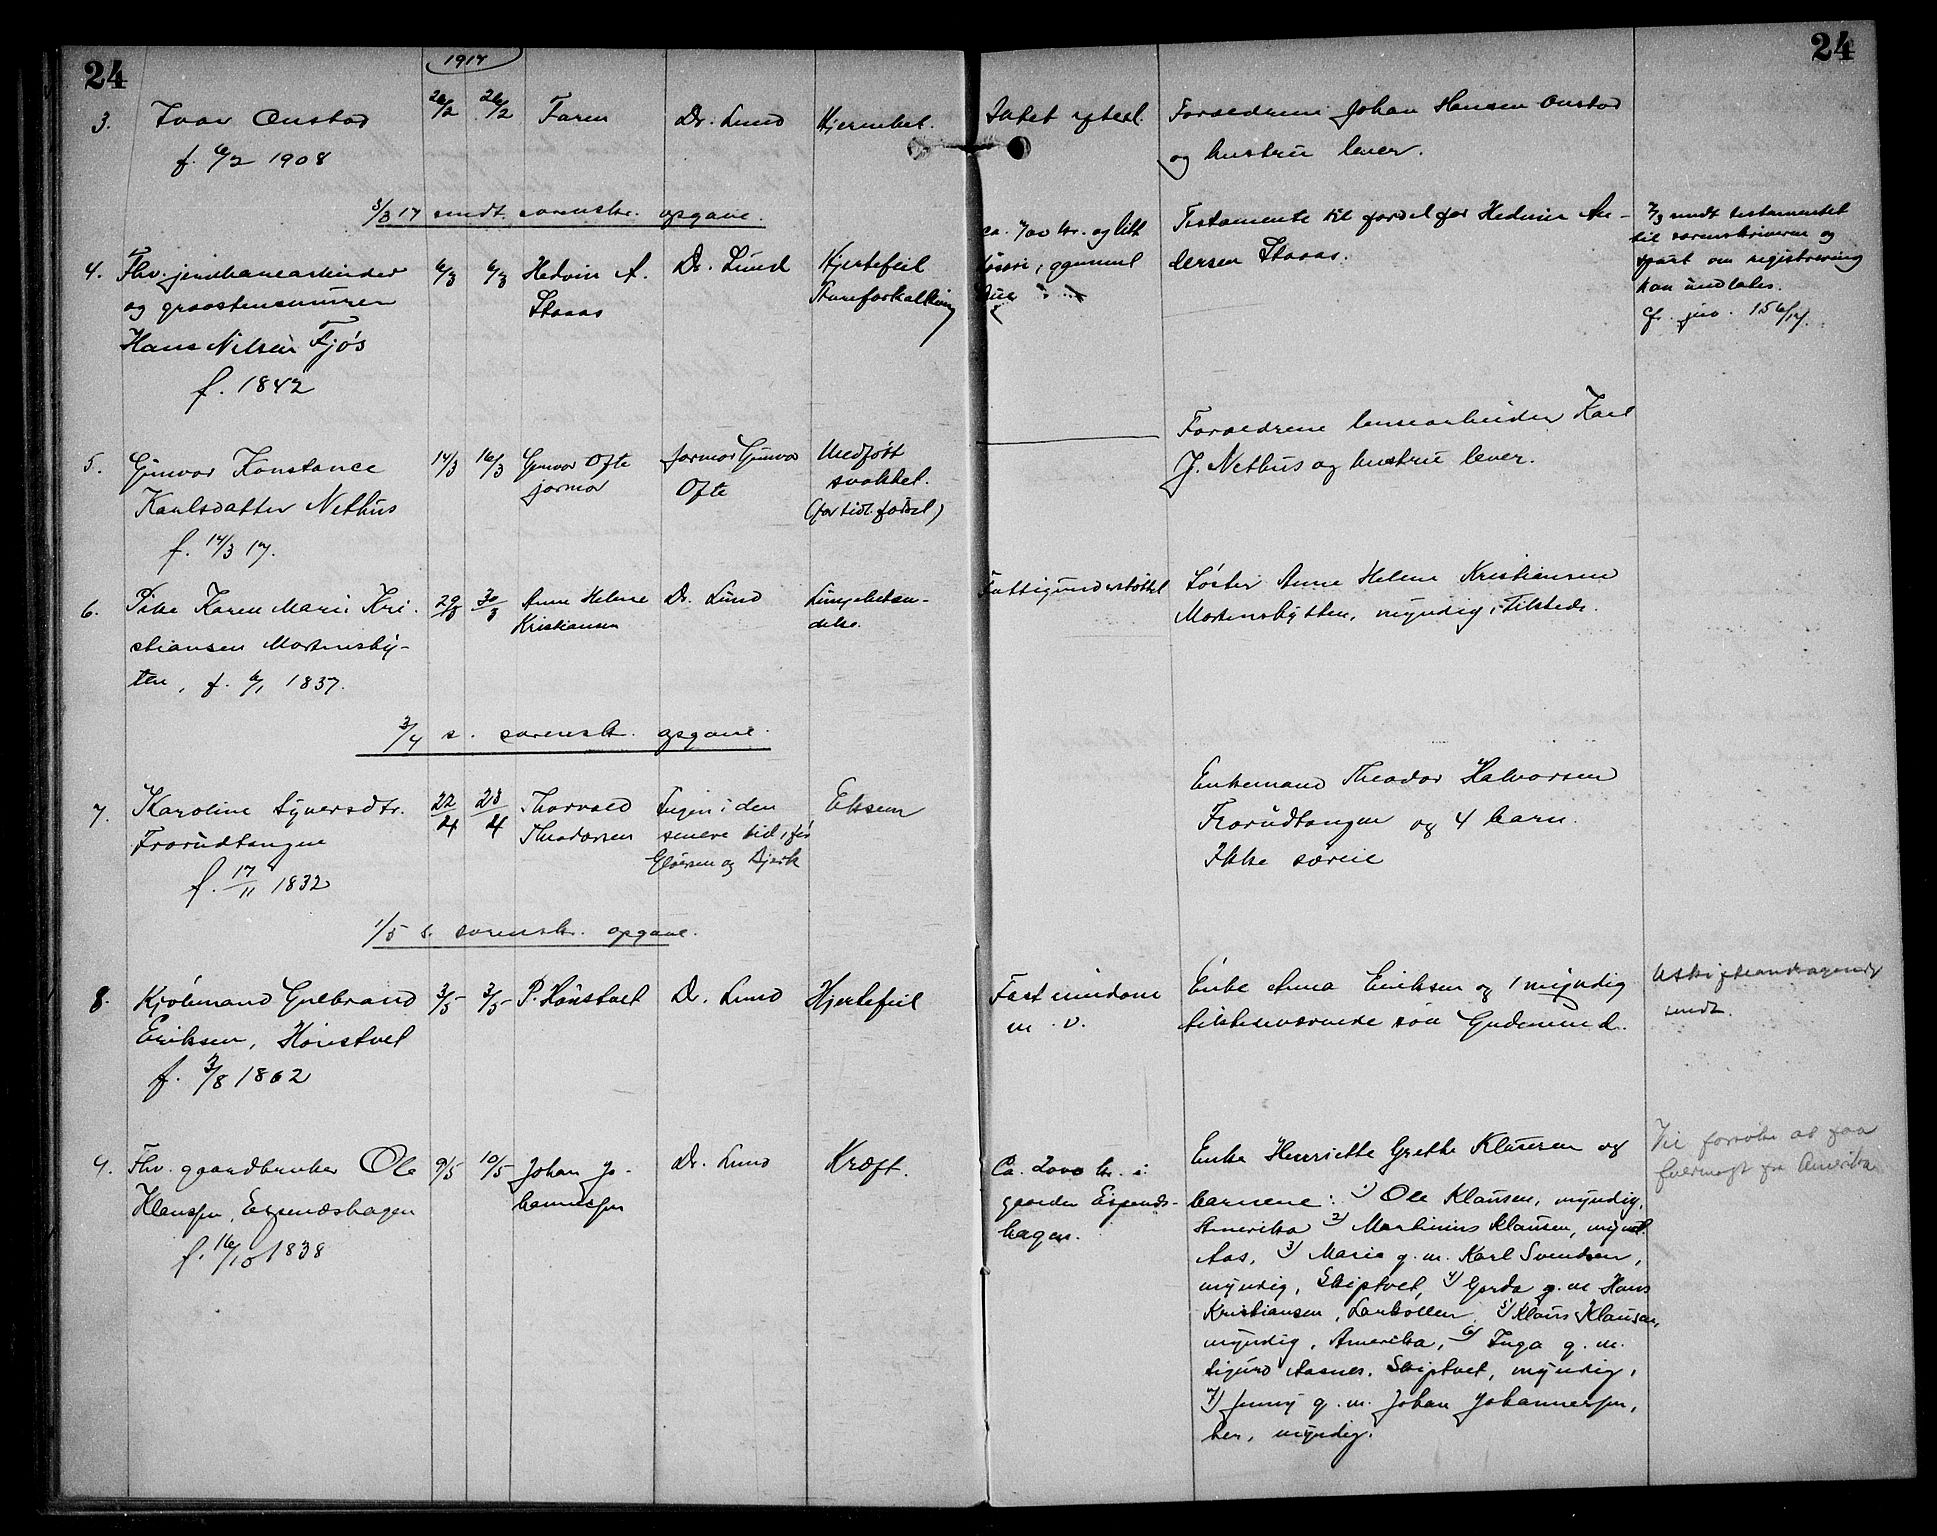 24
24
1917
3. Ivar Onstad 26/2 26/2 Faren Dr. Lund Hjernebet. Intet efterl. Forældrene Johan Hansen Onstad
f. 6/2 1908 og hustru lever.
3/3 17 sendt sorenskr. opgave.
4. Fhv. jernbanearbeider 6/3 6/3 Hedvin A. Dr. Lund Hjertefeil ca. 700 kr. og litt Testamente til fordel for Hedvin An-
og graastensmurer Staaas Aareforkalkning løsøre, gammel dersen Staaas.
Hans Nilsen Fjøs
f. 1842
7/3 sendt testamentet
til sorenskriveren og
spurt om registrering
kan undlates.
cfr. jnr. 156/17.
5. Gunvor Konstance 14/3 16/3 Gunvor Ofte farmor Gunvor Medfødt Forældrene lensearbeider Karl
Karlsdatter Nethus farmor Ofte svakhet. J. Nethus og hustru lever.
f. 14/3 17. (for tidl. fødsel)
6. Pike Karen Marie Kri- 29/3 30/3 Anne Helene Dr. Lund Lungebetæn- Fattigunderstøttet Søster Anne Helene Kristiansen
stiansen Mortensby- Kristiansen delse. Mortensbytten, myndig, Tilstede.
ten, f. 6/1 1837.
3/4 s. sorenskr. opgave.
7. Karoline Syversdtr. 22/4 23/4 Thorvald Ingen i den Eksem Enkemand Theodor Halvorsen
Frorudtangen Theodorsen senere tid, før Frorudtangen og 4 barn.
f. 17/11 1832 Gløersen og Bjerk Ikke særeie
1/5 s. sorenskr. opgave.
8. Kjølemand Gulbrand 3/5 3/5 P. Hønstvet Dr. Lund Hjertefeil Fast eiendom Enke Anna Eriksen og 1 myndig
Eriksen, Hønstvet m. v. tilstedeværende søn Gudmund.
f. 3/8 1862
sendt.
9. Fhv. gaardbruker Ole 9/5 10/5 Johan Jo- Dr. Lund Kræft. Ca. 2000 kr. i Enke Henriette Grethe Klausen og
Klausen, Espenæshagen hannessen gaarden Espenæs- barnene: 1) Ole Klausen, myndig,
f. 16/10 1838 hagen. Amerika 2) Martinius Klausen, mynd.
Aas, 3) Marie g. m. Karl Svendsen,
myndig, Skiptvet, 4) Gerda g. m. Hans
Kristiansen, Larkollen, 5) Klaus Klausen,
myndig, Amerika, 6) Inga g. m.
Sigurd Aasnes, Skiptvet, myndig,
7) Jenny g. m. Johan Johannessen,
her, myndig.
Vil forsøke at faa
fuldmagt fra Amerika